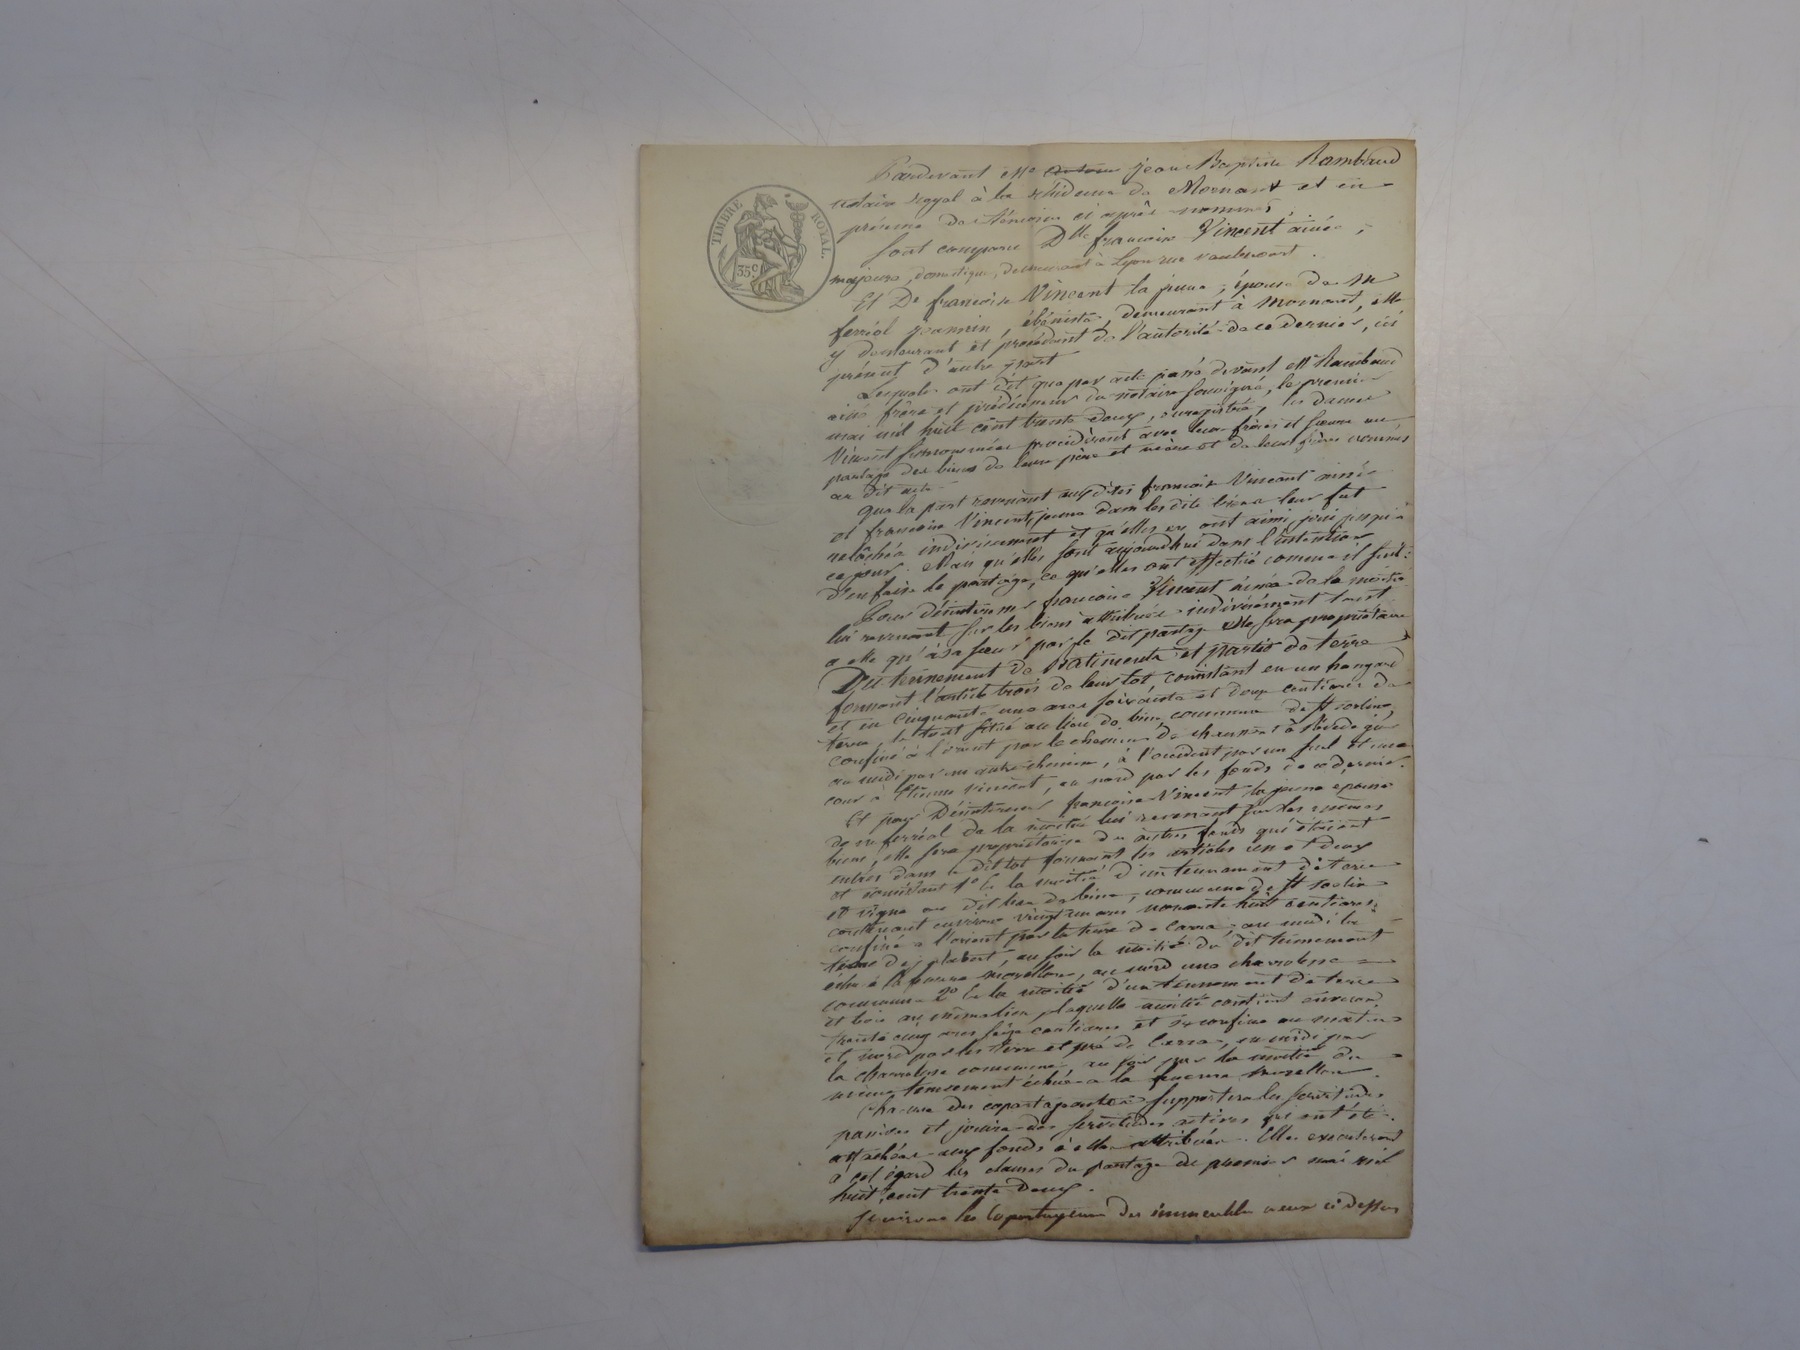 TIMBRE ROYAL.
35c
Pardevant Me jean Baptiste Rambaud
notaire royal à la résidence de Mornant et en
présence des témoins ci après nommés,
Sont comparu Dlle francoise Vincent ainée,
majeure, domestique, demeurant à Lyon rue
Et De francoise Vincent la jeune, épouse de Mr
ferréol jeannin, ébéniste, demeurant à Mornant, elle
y demeurant et procédant de l'autorité de ce dernier, ici
présent d'autre part
Lesquels ont dit que par acte passé devant Me Rambaud
ainé frère et prédécesseur du notaire soussigné, le premier
mai mil huit cent trente deux, enregistré, les dames
Vincent susnommées procédèrent avec leur frères et soeurs au
partage des biens de leurs père et mère et de leurs frères nommés
au dit acte
que la part revenant aux dites francoise Vincent ainée
et francoise Vincent jeune dans les dits biens leur fut
relâchée indivisément et qu'elles en ont ainsi joui jusqu'à
ce jour. Mais qu'elles sont aujourdhui dans l'intention
d'en faire le partage, ce qu'elles ont effectué comme il suit:
Pour désintéresser francoise Vincent ainée de la moitié
lui revenant sur les biens attribués indivisément tant
a elle qu'à sa soeur par le dit partage elle sera propriétaire
Du tènement de batiments et partie de terre
formant l'article trois de leur lot consistant en un hangard
et en cinquante une ares soixante et douze centiares de
terre, le tout situé au lieu de bine commune de St Sorlin,
confiné à l'orient par le chemin de chaussan à
au midi par un autre chemin, à l'occident par un suel et une
cour à Etienne Vincent, au nord par les fonds de ce dernier.
Et pour Désintéresser francoise Vincent la jeune epouse
de m ferréol de la moitié lui revenant sur les mêmes
biens, elle sera propriétaire des autres fonds qui étaient
entrés dans le dit lot formant les articles un et deux
et consistant 1° En la moitié d'un tennement de terre
et vigne au dit lieu de bine, commune de St Sorlin
contenant environ vingt un ares nonante huit centiares,
confiné à l'orient par la terre de Carra, au midi la
terre de, au soir la moitié du dit tennement
échu à la femme, au nord une charrolesse
commune 2° En la moitié d'un tennement de terre
et bois au même lieu, laquelle moitié contient environ
trente cinq ares seize centiares et se confine au matin
et nord par les terre et pré de Carra, au midi par
la charrolesse commune, au soir par la moitié du
même tennement échue a la femme
Chacune des copartageantes supportera les servitudes
passives et jouira des servitudes actives qui ont été
attachées aux fonds à elles attribués. Elles exécuteront
à cet égard les clauses du partage du premier mai mil
huit cent trente deux.
les copartageans des immeubles à eux ci dessus